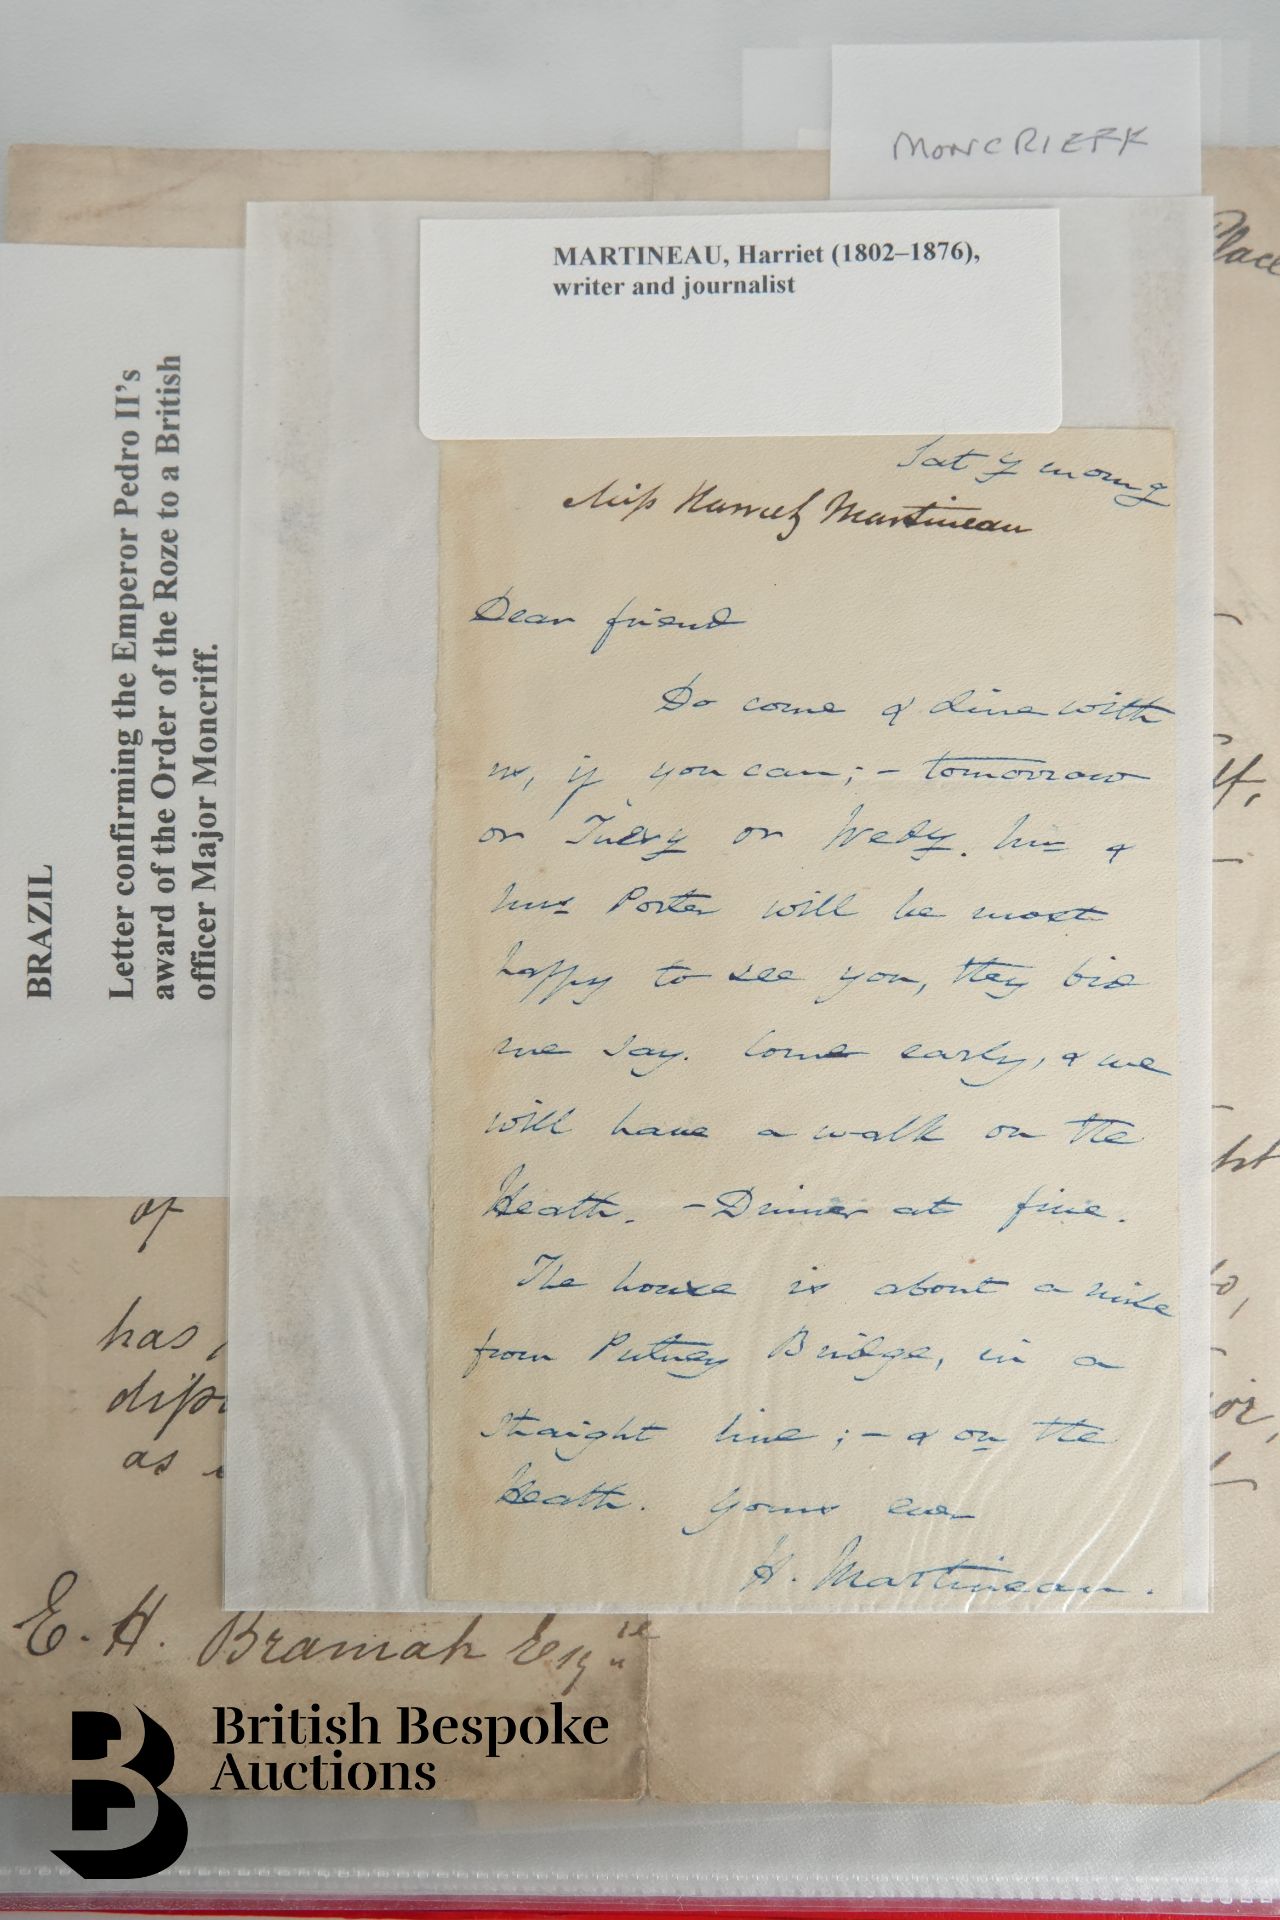 MONCRIEFF
Place
MARTINEAU, Harriet (1802–1876),
writer and journalist
BRAZIL
Letter confirming the Emperor Pedro II's
award of the Order of the Roze to a British
officer Major Moncriff.
Saty morng
Miss Harriet Martineau
Dear friend
Do come & dine with
us, if you can; – tomorrow
or Tuesy or Wedy. Mr &
Mrs Porter will be most
happy to see you, they bid
me say. Come early, & we
will have a walk on the
Heath. – Dinner at five.
The house is about a mile
from Putney Bridge, in a
straight line; – & on the
Heath. Yours ever
H. Martineau.
of
has
as
E. H. Bramah Esqre
British Bespoke
Auctions